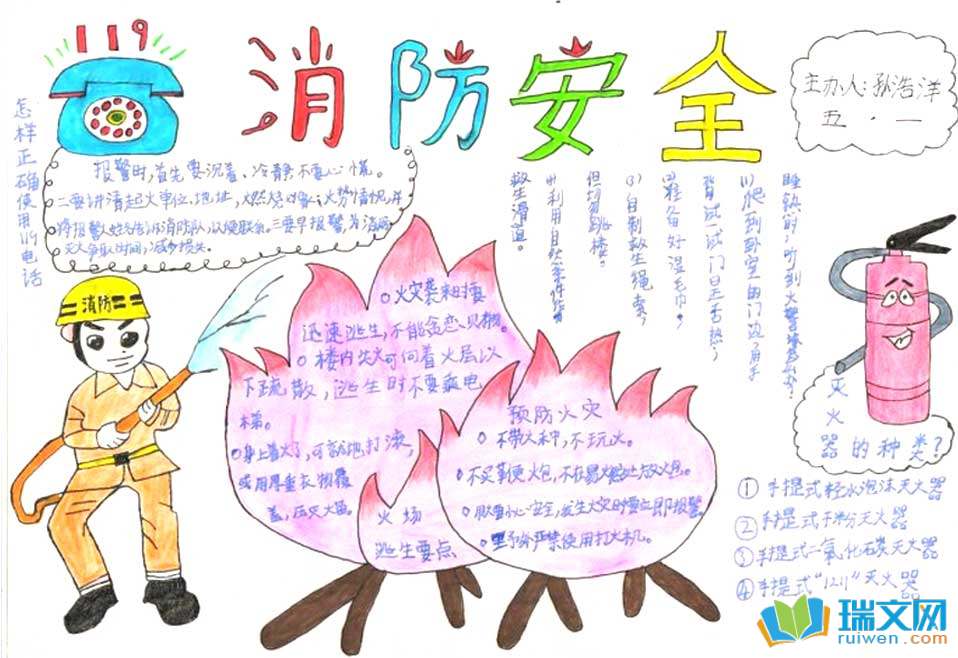 119
消防安全
主办人:孙浩洋
五.一
怎样正确使用119电话
报警时,首先要沉着、冷静不要心慌。
二要讲清起火单位、地址,燃烧对象、火势情况,并
将报警姓名告诉消防队,以便联系。三要早报警,为消防
灭火争取时间,减少损失。
睡觉时,听到火警
(1)爬到卧室的门边,用手
背试一试门是否热;
(2)准备好湿毛巾;
(3)自制救生绳索,
但切勿跳楼。
(4)利用自然条件作
救生滑道。
消防
火灾袭来时要
迅速逃生,不能贪恋财物。
楼内失火可向着火层以
下疏散,逃生时不要乘电
梯。
身上着火了,可就地打滚,
或用厚重衣物覆
盖,压灭火苗。
火场
逃生要点
预防火灾
不带火种,不玩火。
不买
火炮,不在易燃
处放火炮。
发生火灾时要立即报警
野外严禁使用打火机。
灭火器的种类?
①手提式轻水泡沫灭火器
②手提式干粉灭火器
③手提式二氧化碳灭火器
④手提式“1211”灭火器
瑞文网
ruiwen.com